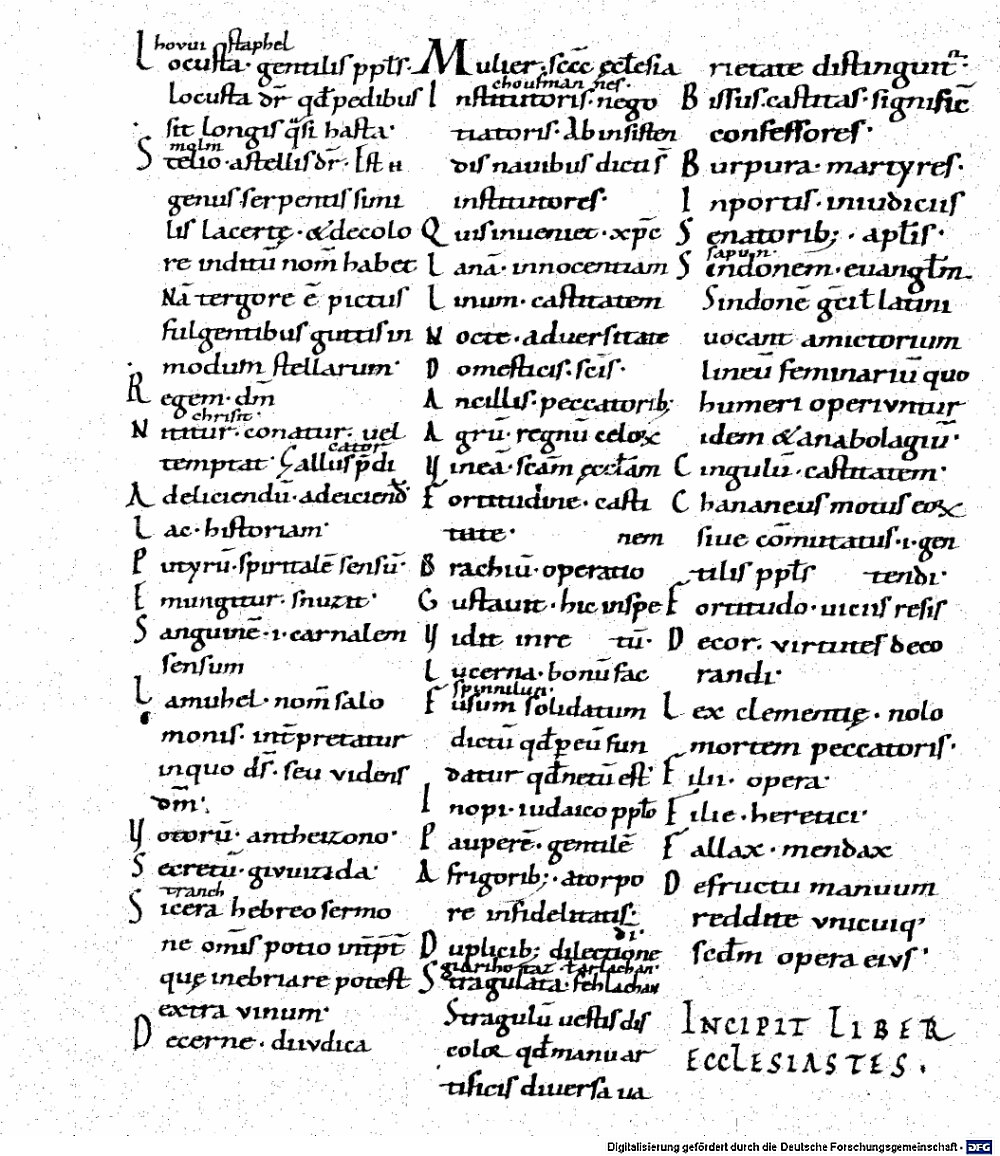 hovui staphel
Locusta· gentilis ppl̄s·
Locusta dr̄ qd̄ pedibus
sit longis q̄si hasta·
molm
Stelio· a stellis dr̄· Est ii
genus serpentis simi
lis lacertę· & decolo
re inditū nom̄ habet
Nā tergore ē pictus
fulgentibus guttis in
modum stellarum·
Regem· dm̄
christit·
Nititur· conatur· uel
temptat·
cator
Gallus p̄di
A deliciendū· adeiciend̄
Lac· historiam·
Putyrū· spiritalē sensū·
Emungitur· snuzit·
Sanguinē· i· carnalem
sensum
Lamuhel· nom̄ salo
monis· int̄pretatur
inquo dś· seu videns
dm̄·
Votorū· antheizono·
Secretū· givuizida·
tranch
Sicera hebreo sermo
ne om̄is potio int̄pt̄
quę inebriare potest
extra vinum·
Decerne· diiudica
Mulier· scē ecclesia
choufman nes·
Institutoris· nego
tiatoris· Ab insisten
dis nauibus dictus
institutores·
Quis inueniet· xp̄c
Lanā· innocentiam
Linum· castitatem
Nocte· aduersitate
Domesticis· scīs·
Ancillis· peccatorib;
Agrū· regnū celoꝝ
Vineā· scām ęccl̄am
Fortitudine· casti
tate· nem
Brachiū· operatio
Gustauit· hic inspe
Vidit in re tū·
Lucerna· bonū fac
spinnilun·
Fusum solidatum
dictū qd̄ p eū fun
datur qd̄ netū est·
Inopi· iudaico ppl̄o
Pauperē· gentilē
A frigorib;· a torpo
re infidelitatis·
di·
Duplicib; dilectione
Stragulata· fehlachan
Stragulū uestis dis
coloꝛ qd̄ manu ar
tificis diuersa ua
rietate distinguit̄·
Bissus· castitas· significt̄
confessores·
Burpura· martyres·
In portis· in iudiciis
Senatorib;· apl̄is·
sapun·
Sindonem· euangl̄m·
Sindonē gcīt latini
uocant amictorium
lineū feminariū quo
humeri operiuntur
idem & anabolagiū·
Cingulū· castitatem·
Chananeus motus eoꝝ
siue cōmutatus· i· gen
tilis ppl̄s tendi·
Fortitudo· uiciis resis
Decor· virtutes deco
randi·
Lex clementię· nolo
mortem peccatoris·
Filii· opera·
Filie· heretici·
Fallax· mendax
De fructu manuum
reddite vnicuiq·
scdm̄ opera eius·
INCIPIT LIBER
ECCLESIASTES·
Digitalisierung gefördert durch die Deutsche Forschungsgemeinschaft - DFG